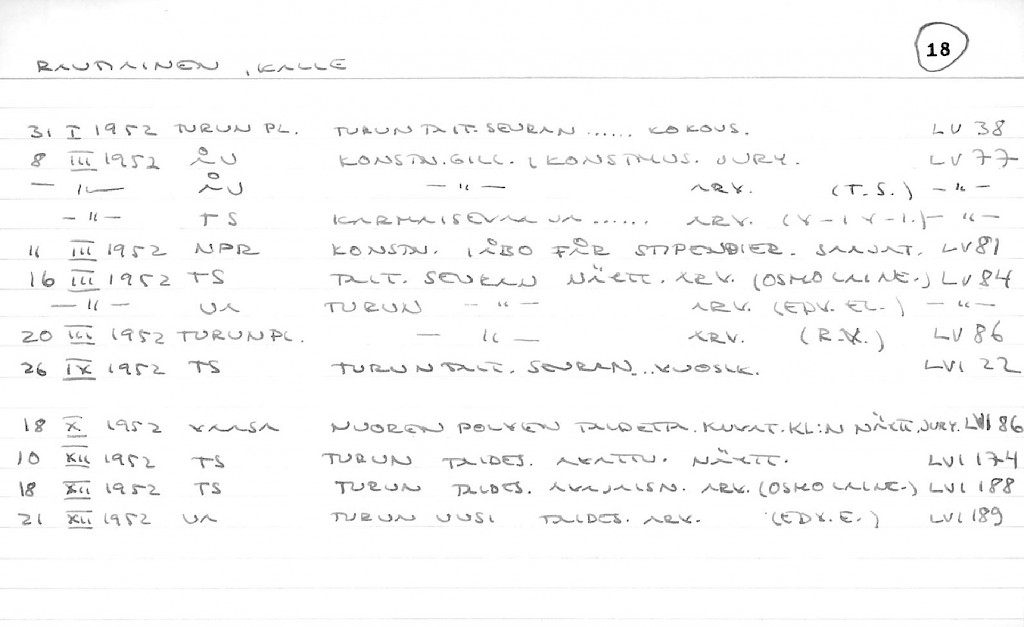 18
RAUTIAINEN, KALLE
31 I 1952 TURUN PL. TURUN TAIT. SEURAN ...... KOKOUS. LV 38
8 III 1952 ÅU KONSTN. GILL. KONSTNUS. JURY. LV 77
— " — ÅU — " — ARV. (T.S.) — " —
— " — TS ...... ARV. — " —
11 III 1952 NPR KONSTN. I ÅBO FÅR STIPENDIER. LV 81
16 III 1952 TS TAIT. SEURAN NÄYTT. ARV. (OSMO LAINE.) LV 84
— " — UA TURUN — " — ARV. (EDV. EL.) — " —
20 III 1952 TURUN PL. — " — ARV. (R.V.) LV 86
26 IX 1952 TS TURUN TAIT. SEURAN... VUOSIK. LVI 22
18 X 1952 VAASA NUOREN POLVEN TAIDETTA. KUVAT. KL:N NÄYTT. JURY. LVI 86
10 XII 1952 TS TURUN TAIDES. AVATTU. NÄYTT. LVI 174
18 XII 1952 TS TURUN TAIDES. AVAJAISN. ARV. (OSMO LAINE.) LVI 188
21 XII 1952 UA TURUN UUSI TAIDES. ARV. (EDV. E.) LVI 189